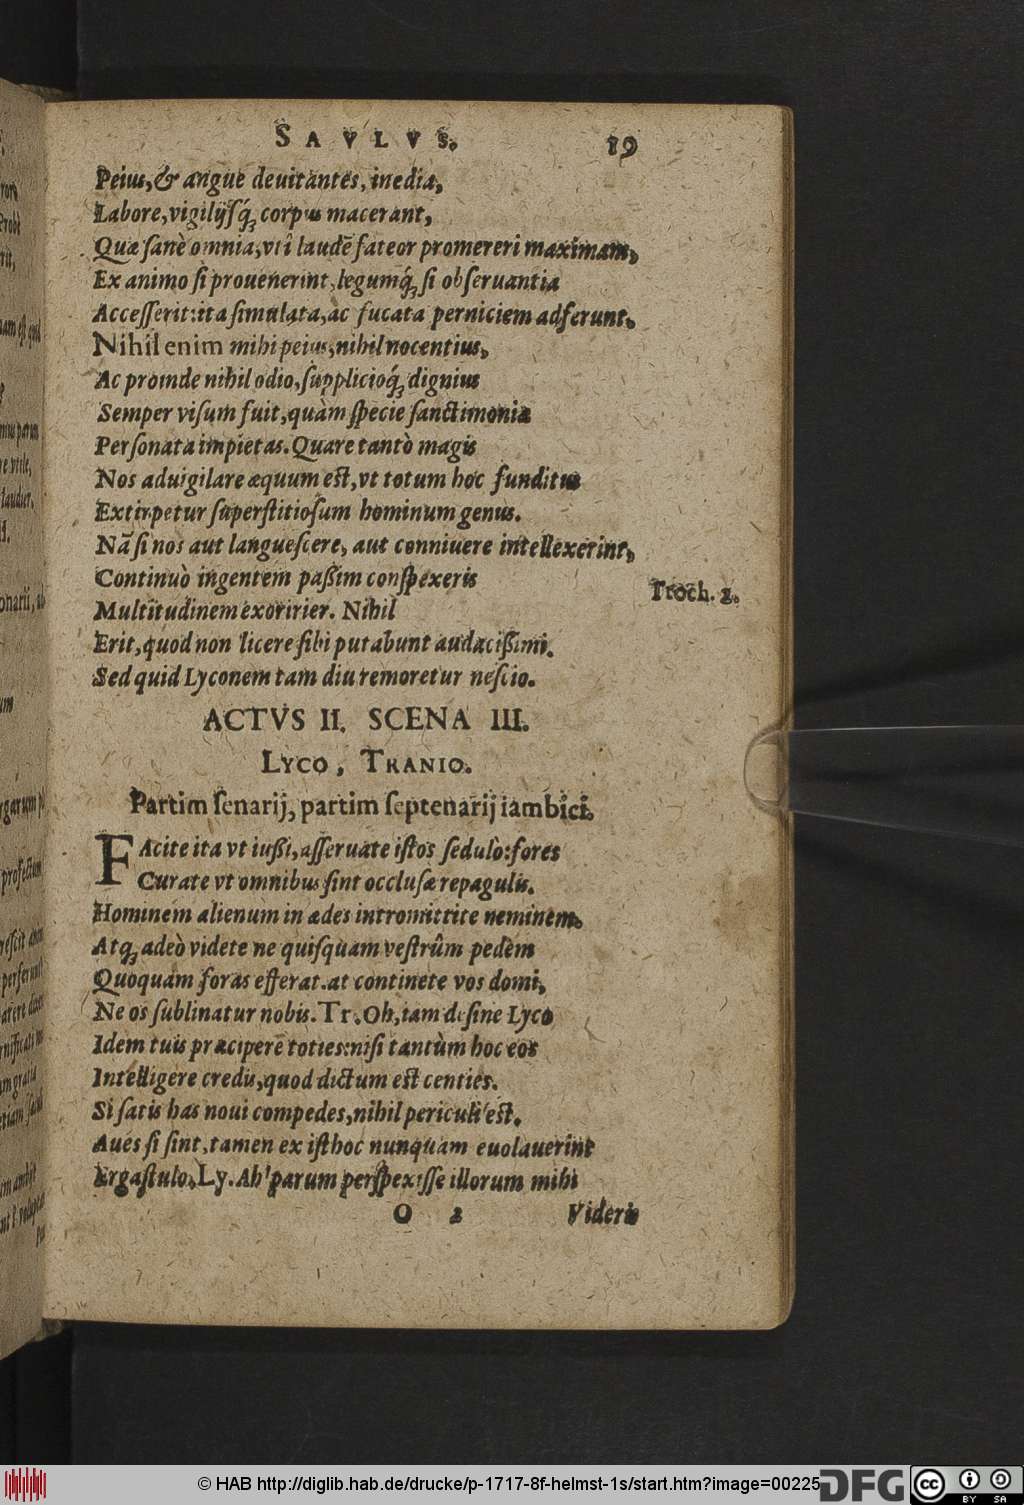 SAVLVS. 19
Peius, & angue deuitantes, inedia,
Labore, vigilijsq́; corpus macerant,
Quæ sanè omnia, vti laudē fateor promereri maximam,
Ex animo si prouenerint, legumq́; si obseruantia
Accesserit: ita simulata, ac fucata perniciem adferunt,
Nihil enim mihi peius, nihil nocentius,
Ac proinde nihil odio, supplicioq́; dignius
Semper visum fuit, quàm specie sanctimoniæ
Personata impietas. Quare tantò magis
Nos aduigilare æquum est, vt totum hoc funditus
Extirpetur superstitiosum hominum genus.
Nā si nos aut languescere, aut conniuere intellexerint,
Continuò ingentem paßim conspexeris
Troch. 2.
Multitudinem exoririer. Nihil
Erit, quod non licere sibi putabunt audacißimi.
Sed quid Lyconem tam diu remoretur nescio.
ACTVS II. SCENA III.
LYCO, TRANIO.
Partim senarij, partim septenarij iambici.
FAcite ita vt iußi, asseruate istos sedulò: fores
Curate vt omnibus sint occlusæ repagulis.
Hominem alienum in ædes intromittite neminem.
Atq; adeò videte ne quisquam vestrûm pedem
Quoquam foras efferat. at continete vos domi,
Ne os sublinatur nobis. Tr. Oh, iam desine Lyco
Idem tuis præcipere toties: nisi tantùm hoc eos
Intelligere credis, quod dictum est centies.
Si satis has noui compedes, nihil periculi est.
Aues si sint, tamen ex isthoc nunquam euolauerint
Ergastulo. Ly. Ah! parum perspexisse illorum mihi
O 2 Videris
© HAB http://diglib.hab.de/drucke/p-1717-8f-helmst-1s/start.htm?image=00225
DFG
cc BY SA